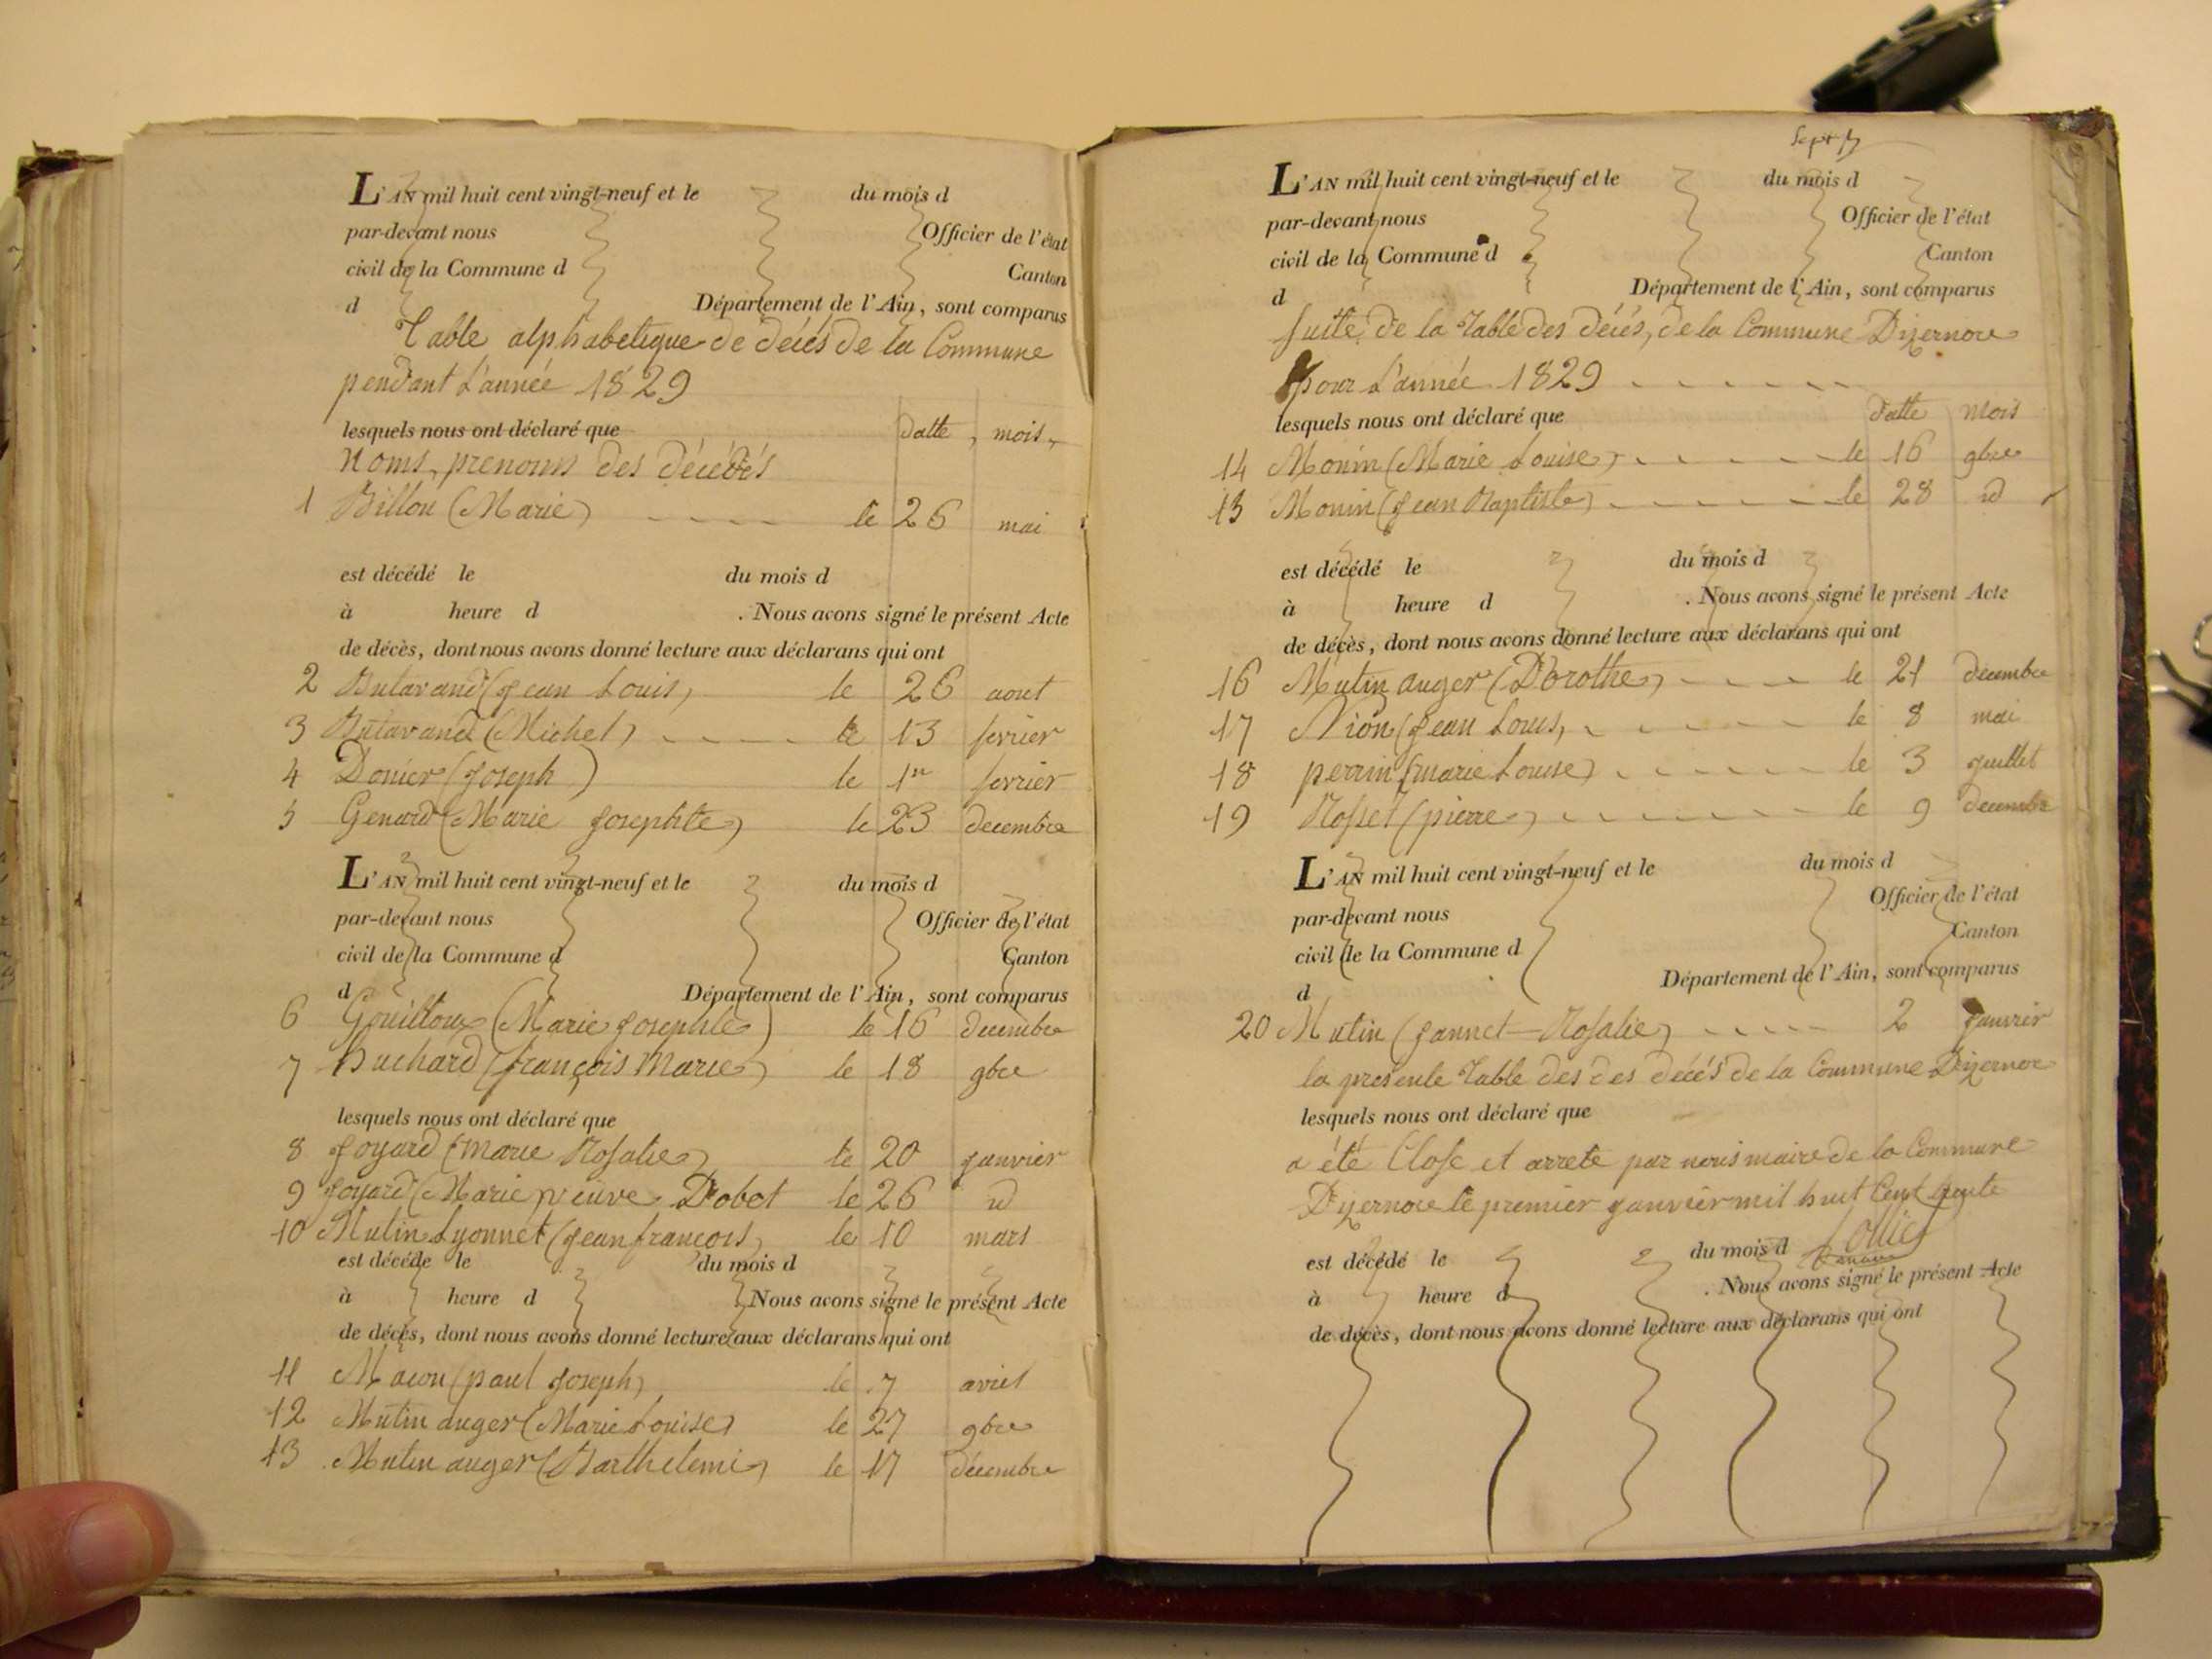 L'AN mil huit cent vingt-neuf et le du mois d
par-devant nous Officier de l'état
civil de la Commune d Canton
d Département de l'Ain, sont comparus
Table alphabetique de décés de la Commune
pendant L'année 1829
lesquels nous ont déclaré que datte, mois,
Noms, prenoms des décédés
1 Billon (Marie) le 26 mai
est décédé le du mois d
à heure d . Nous avons signé le présent Acte
de décès, dont nous avons donné lecture aux déclarans qui ont
2 Butavand (Jean Louis) le 26 aout
3 Butavand (Michel) le 13 fevrier
4 Donier (Joseph) le 1er fevrier
5 Genard (Marie Josephte) le 23 decembre
L'AN mil huit cent vingt-neuf et le du mois d
par-devant nous Officier de l'état
civil de la Commune d Canton
d Département de l'Ain, sont comparus
6 Gouilloux (Marie Josephte) le 16 decembre
7 Huchard (françois Marie) le 18 gbre
lesquels nous ont déclaré que
8 Joyard (Marie Rosalie) le 20 Janvier
9 Joyard (Marie veuve Dobot le 26 id
10 Mutin Lyonnet (Jean francois) le 10 mars
est décédé le du mois d
à heure d . Nous avons signé le présent Acte
de décès, dont nous avons donné lecture aux déclarans qui ont
11 Macon (paul Joseph) le 7 avril
12 Mutin auger (Marie Louise) le 27 gbre
13 Mutin auger (Barthelemi) le 17 décembre
Sept
L'AN mil huit cent vingt-neuf et le du mois d
par-devant nous Officier de l'état
civil de la Commune d Canton
d Département de l'Ain, sont comparus
Suite de la Table des décés, de la Commune Dizernore
pour L'année 1829
lesquels nous ont déclaré que datte mois
14 Monin (Marie Louise) le 16 gbre
15 Monin (Jean Baptiste) le 28 id
est décédé le du mois d
à heure d . Nous avons signé le présent Acte
de décès, dont nous avons donné lecture aux déclarans qui ont
16 Mutin auger (Dorothe) le 21 décembre
17 Nion (Jean Louis) le 8 mai
18 perrin (marie Louise) le 3 Juillet
19 Rosset (pierre) le 9 decembre
L'AN mil huit cent vingt-neuf et le du mois d
par-devant nous Officier de l'état
civil de la Commune d Canton
d Département de l'Ain, sont comparus
20 Mutin (Jannet-Rosalie) 2 Janvier
la presente Table des des décés de la Commune Dizernore
lesquels nous ont déclaré que
a été Close et arrete par nous maire de la Commune
Dizernore le premier Janvier mil huit Cent trente
est décédé le du mois d
à heure d . Nous avons signé le présent Acte
de décès, dont nous avons donné lecture aux déclarans qui ont